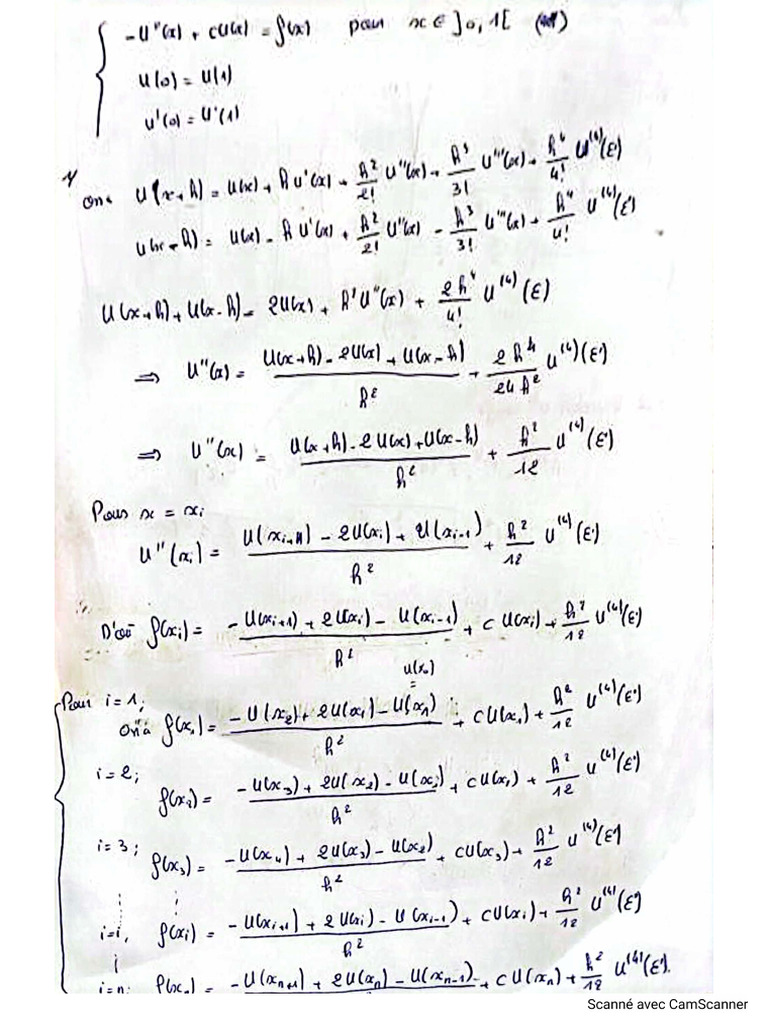 -U''(x) + cU(x) = f(x) pour x ∈ ]0,1[
U(0) = U(1)
U'(0) = U'(1)
1/ On a U(x+h) = U(x) + hU'(x) + h²/2! U''(x) + h³/3! U'''(x) + h⁴/4! U⁽⁴⁾(ε)
U(x-h) = U(x) - hU'(x) + h²/2! U''(x) - h³/3! U'''(x) + h⁴/4! U⁽⁴⁾(ε)
U(x+h) + U(x-h) = 2U(x) + h²U''(x) + 2h⁴/4! U⁽⁴⁾(ε)
⇒ U''(x) = (U(x+h) - 2U(x) + U(x-h))/h² + 2h⁴/24h² U⁽⁴⁾(ε)
⇒ U''(x) = (U(x+h) - 2U(x) + U(x-h))/h² + h²/12 U⁽⁴⁾(ε)
Pour x = xᵢ
U''(xᵢ) = (U(xᵢ₊₁) - 2U(xᵢ) + U(xᵢ₋₁))/h² + h²/12 U⁽⁴⁾(ε)
D'où f(xᵢ) = (-U(xᵢ₊₁) + 2U(xᵢ) - U(xᵢ₋₁))/h² + cU(xᵢ) + h²/12 U⁽⁴⁾(ε)
U(x₀)
=
Pour i = 1;
On a f(x₁) = (-U(x₂) + 2U(x₁) - U(xₙ))/h² + cU(x₁) + h²/12 U⁽⁴⁾(ε)
i = 2;
f(x₂) = (-U(x₃) + 2U(x₂) - U(x₁))/h² + cU(x₂) + h²/12 U⁽⁴⁾(ε)
i = 3;
f(x₃) = (-U(x₄) + 2U(x₃) - U(x₂))/h² + cU(x₃) + h²/12 U⁽⁴⁾(ε)
i = i, f(xᵢ) = (-U(xᵢ₊₁) + 2U(xᵢ) - U(xᵢ₋₁))/h² + cU(xᵢ) + h²/12 U⁽⁴⁾(ε)
i = n; f(xₙ) = -U(xₙ₊₁) + 2U(xₙ) - U(xₙ₋₁) + cU(xₙ) + h²/12 U⁽⁴⁾(ε).
Scanné avec CamScanner